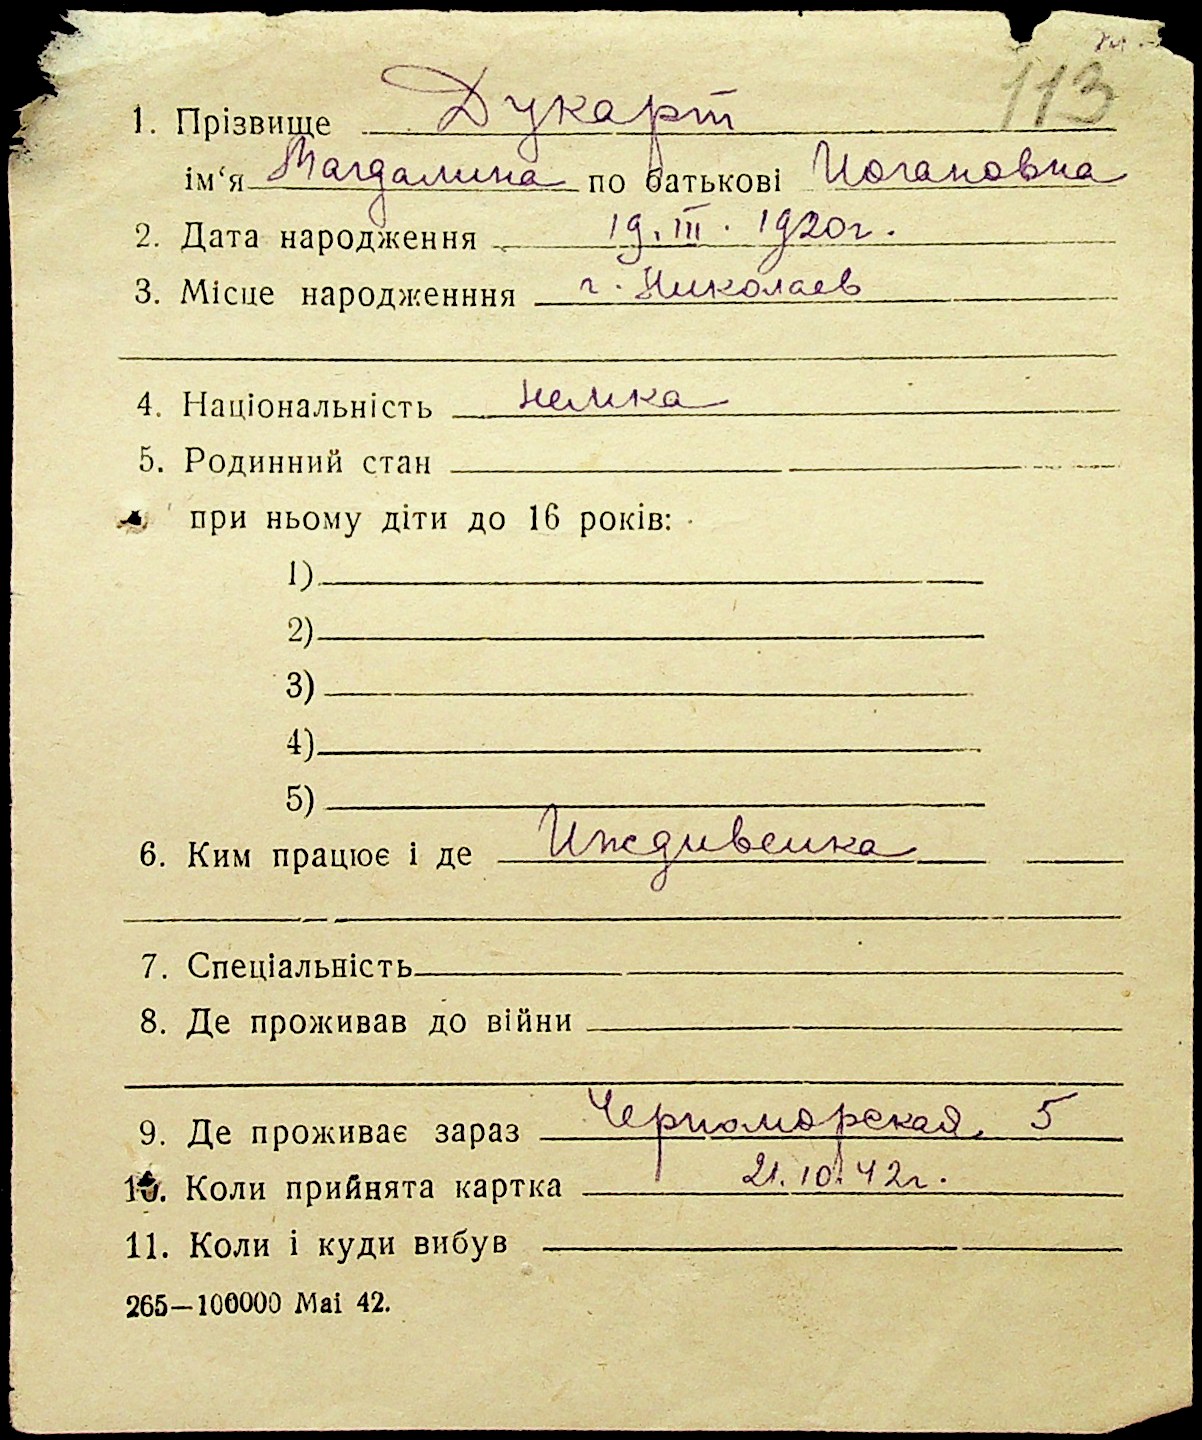 113
1. Прізвище Дукарт
ім‘я Магдалина по батькові Иогановна
2. Дата народження 19. III. 1920г.
3. Місце народженння г. Николаев
4. Національність немка
5. Родинний стан
при ньому діти до 16 років:
1)
2)
3)
4)
5)
6. Ким працює і де Иждивенка
7. Спеціальність
8. Де проживав до війни
9. Де проживає зараз Черноморская, 5
10. Коли прийнята картка 21.10.42г.
11. Коли і куди вибув
265—100000 Mai 42.